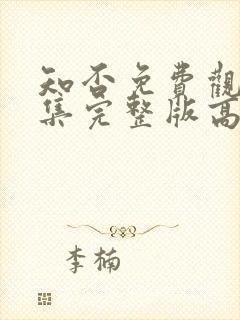 知否免費觀
集完整版高
李楠